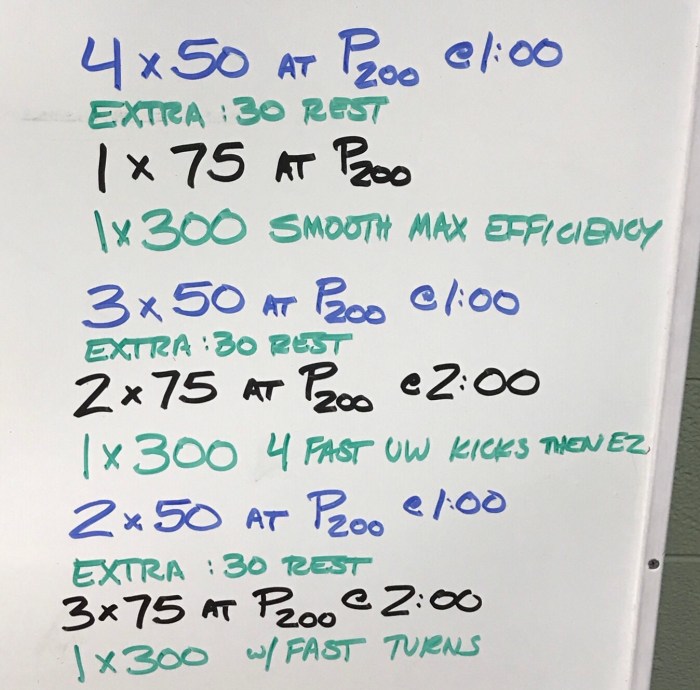 4 x 50 AT P200 @ 1:00
EXTRA :30 REST
1 x 75 AT P200
1x300 SMOOTH MAX EFFICIENCY
3 x 50 AT P200 @ 1:00
EXTRA :30 REST
2 x 75 AT P200 @ 2:00
1x300 4 FAST UW KICKS THEN EZ
2 x 50 AT P200 @ 1:00
EXTRA :30 REST
3x75 AT P200 @ 2:00
1x300 w/ FAST TURNS